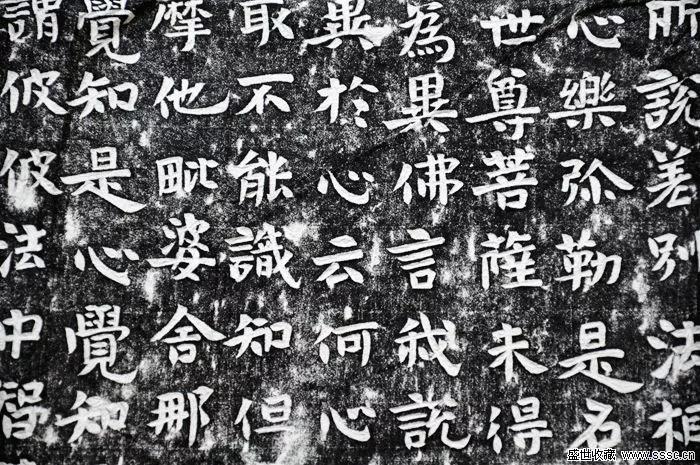 所說差別法相
心樂弥勒是名
世尊菩薩未得
為異佛言我說
異於心云何心
取不能識知但
摩他毗婆舍那
覺知是心覺知
謂彼彼法中智
盛世收藏 www.sssc.cn